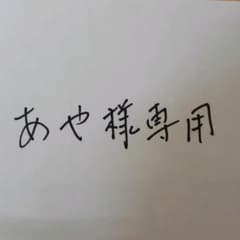 あや様専用